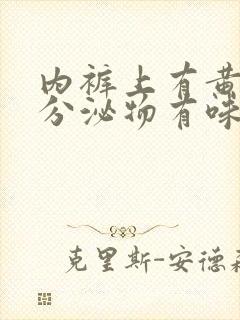 内裤上有黄
分泌物有味
克里斯-安德森